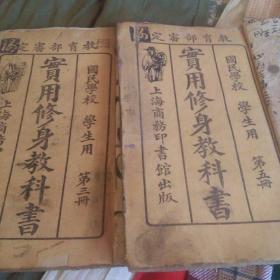 教育部審定
國民學校 學生用 第三冊
實用修身教科書
上海商務印
教育部審定
國民學校 學生用 第五冊
實用修身教科書
上海商務印書館出版